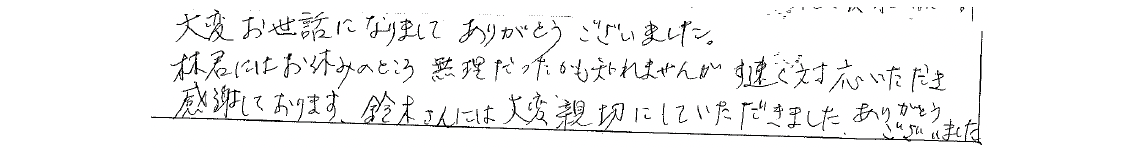 大変お世話になりまして ありがとう ございました。
林君にはお休みのところ 無理だったかも知れませんが すばやく対応いただき
感謝しております、鈴木さんには大変親切にしていただきました、ありがとう
ございました